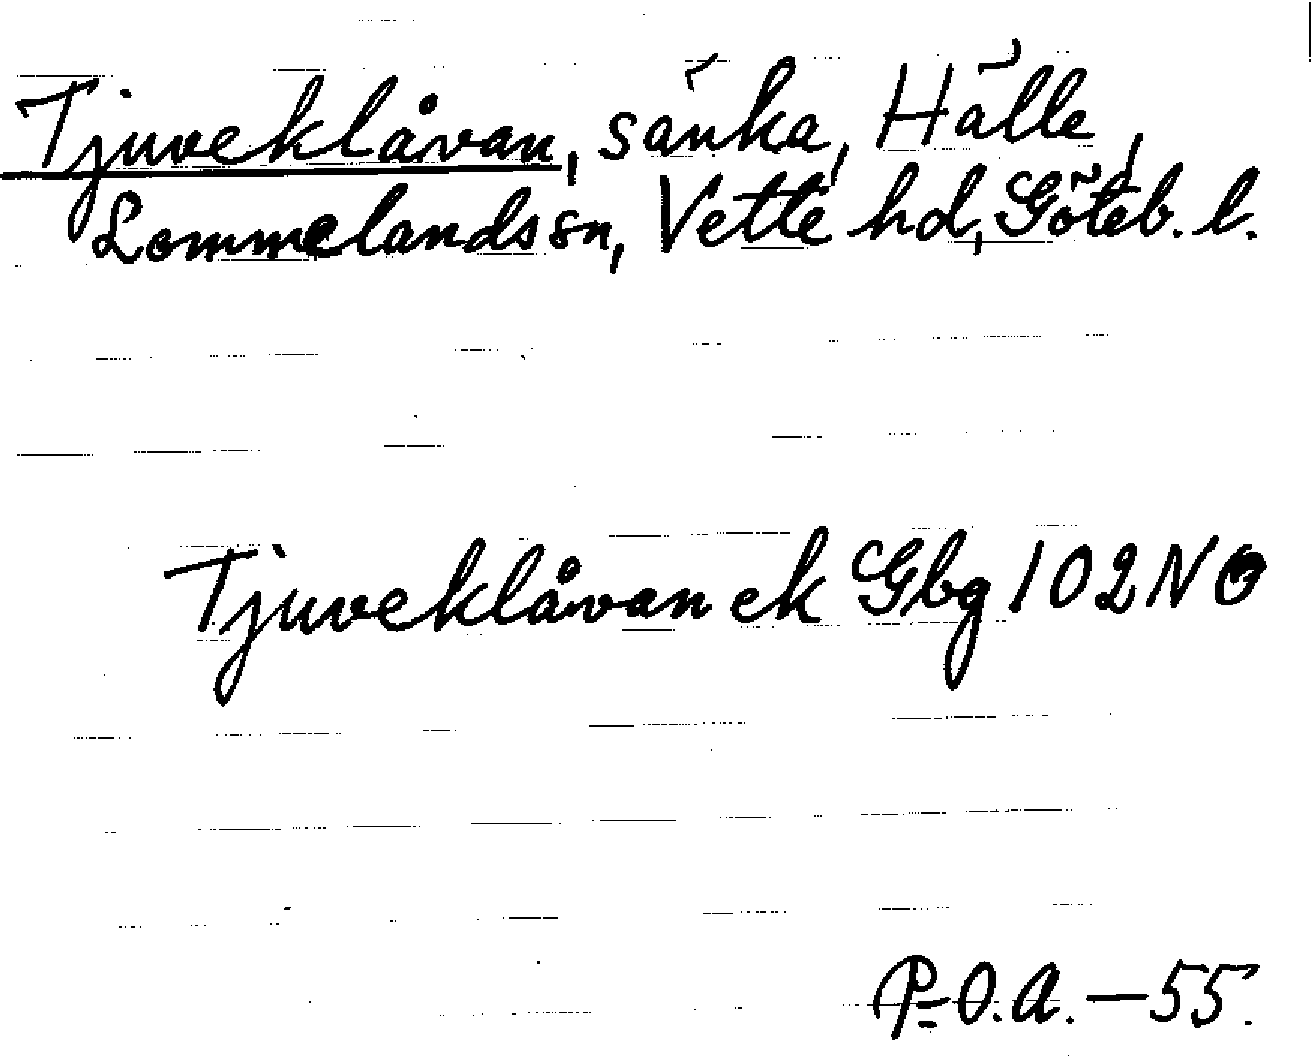 Tjuveklåvan, sänka, Hälle,
Lommelandssn, Vette hd, Göteb. l.
Tjuveklåvan ek Gbg 102 NO
P-O.A. — 55.